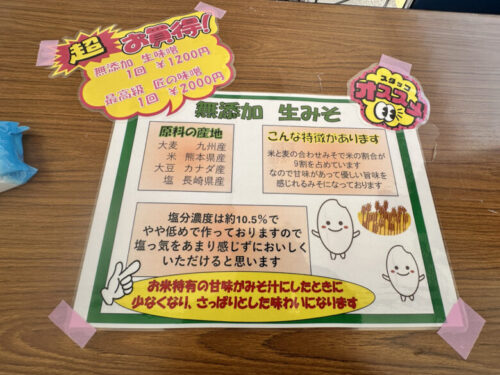 超お買得!
無添加 生味噌
1回 ¥1200円
最高級 匠の味噌
1回 ¥2000円
スタッフ
オススメ
無添加 生みそ
原料の産地
大麦 九州産
米 熊本県産
大豆 カナダ産
塩 長崎県産
こんな特徴があります
米と麦の合わせみそで米の割合が
9割を占めています
なので甘味があって優しい旨味を
感じれるみそになっております
塩分濃度は約10.5%で
やや低めで作っておりますので
塩っ気をあまり感じずにおいしく
いただけると思います
お米特有の甘味がみそ汁にしたときに
少なくなり、さっぱりとした味わいになります